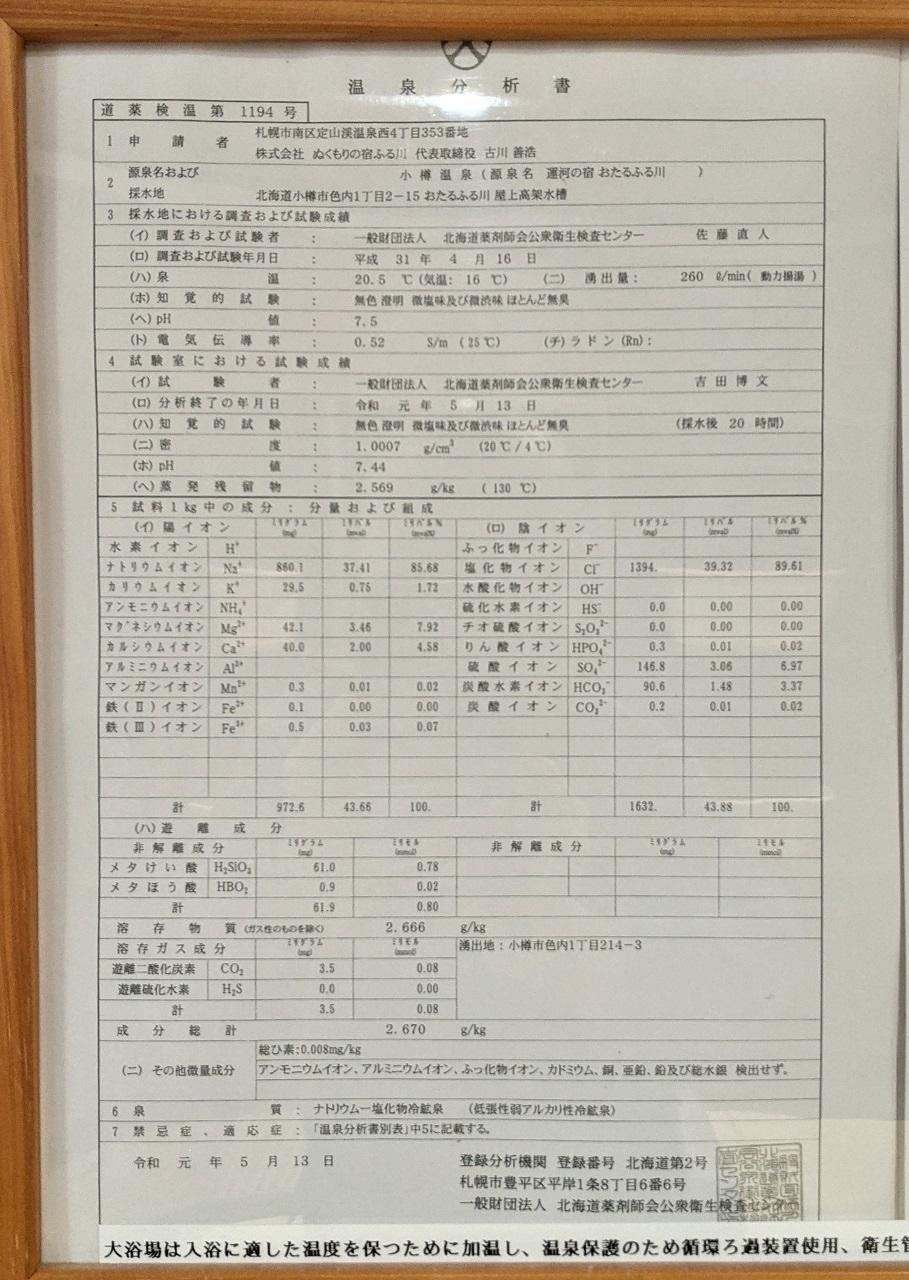 温泉分析書
道薬検温第 1194 号
1 申請者 札幌市南区定山渓温泉西4丁目353番地
株式会社 ぬくもりの宿ふる川 代表取締役 古川 善浩
2 源泉名および 小樽温泉(源泉名 運河の宿 おたるふる川 )
採水地 北海道小樽市色内1丁目2-15 おたるふる川 屋上高架水槽
3 採水地における調査および試験成績
(イ) 調査および試験者 : 一般財団法人 北海道薬剤師会公衆衛生検査センター 佐藤直人
(ロ) 調査および試験年月日 : 平成 31 年 4 月 16 日
(ハ) 泉温 : 20.5 ℃ (気温: 16 ℃) (ニ) 湧出量: 260 ℓ/min( 動力揚湯 )
(ホ) 知覚的試験 : 無色 澄明 微塩味及び微渋味 ほとんど無臭
(ヘ) pH値 : 7.5
(ト) 電気伝導率 : 0.52 S/m (25℃) (チ) ラドン (Rn) :
4 試験室における試験成績
(イ) 試験者 : 一般財団法人 北海道薬剤師会公衆衛生検査センター 吉田博文
(ロ) 分析終了の年月日 : 令和 元 年 5 月 13 日
(ハ) 知覚的試験 : 無色 澄明 微塩味及び微渋味 ほとんど無臭 (採水後 20 時間)
(ニ) 密度 : 1.0007 g/cm³ (20℃/4℃)
(ホ) pH値 : 7.44
(ヘ) 蒸発残留物 : 2.569 g/kg (130 ℃)
5 試料1kg中の成分 : 分量および組成
(イ) 陽イオン ミリグラム(mg) ミリバル(mval) ミリバル%(mval%) (ロ) 陰イオン ミリグラム(mg) ミリバル(mval) ミリバル%(mval%)
水素イオン H⁺ ふっ化物イオン F⁻
ナトリウムイオン Na⁺ 860.1 37.41 85.68 塩化物イオン Cl⁻ 1394. 39.32 89.61
カリウムイオン K⁺ 29.5 0.75 1.72 水酸化物イオン OH⁻
アンモニウムイオン NH₄⁺ 硫化水素イオン HS⁻ 0.0 0.00 0.00
マグネシウムイオン Mg²⁺ 42.1 3.46 7.92 チオ硫酸イオン S₂O₃²⁻ 0.0 0.00 0.00
カルシウムイオン Ca²⁺ 40.0 2.00 4.58 りん酸イオン HPO₄²⁻ 0.3 0.01 0.02
アルミニウムイオン Al³⁺ 硫酸イオン SO₄²⁻ 146.8 3.06 6.97
マンガンイオン Mn²⁺ 0.3 0.01 0.02 炭酸水素イオン HCO₃⁻ 90.6 1.48 3.37
鉄(Ⅱ)イオン Fe²⁺ 0.1 0.00 0.00 炭酸イオン CO₃²⁻ 0.2 0.01 0.02
鉄(Ⅲ)イオン Fe³⁺ 0.5 0.03 0.07
計 972.6 43.66 100. 計 1632. 43.88 100.
(ハ) 遊離成分
非解離成分 ミリグラム(mg) ミリモル(mmol) 非解離成分 ミリグラム(mg) ミリモル(mmol)
メタけい酸 H₂SiO₃ 61.0 0.78
メタほう酸 HBO₂ 0.9 0.02
計 61.9 0.80
溶存物質 (ガス性のものを除く) 2.666 g/kg
溶存ガス成分 ミリグラム(mg) ミリモル(mmol) 湧出地:小樽市色内1丁目214-3
遊離二酸化炭素 CO₂ 3.5 0.08
遊離硫化水素 H₂S 0.0 0.00
計 3.5 0.08
成分総計 2.670 g/kg
総ひ素:0.008mg/kg
(ニ) その他微量成分 アンモニウムイオン、アルミニウムイオン、ふっ化物イオン、カドミウム、銅、亜鉛、鉛及び総水銀 検出せず。
6 泉質 : ナトリウム-塩化物冷鉱泉 (低張性弱アルカリ性冷鉱泉)
7 禁忌症、適応症 : 「温泉分析書別表」中5に記載する。
令和 元 年 5 月 13 日 登録分析機関 登録番号 北海道第2号
札幌市豊平区平岸1条8丁目6番6号
一般財団法人 北海道薬剤師会公衆衛生検査センター
大浴場は入浴に適した温度を保つために加温し、温泉保護のため循環ろ過装置使用、衛生管